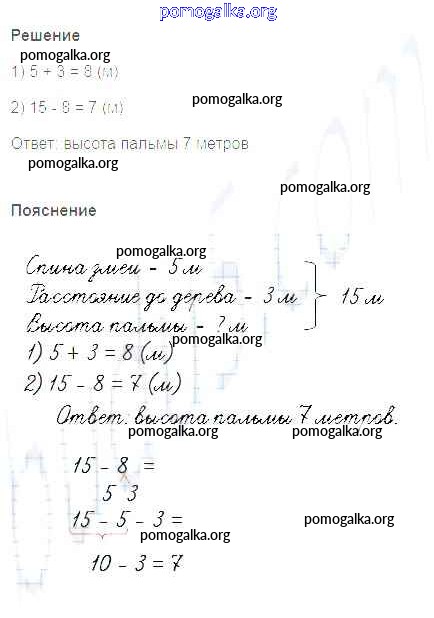 pomogalka.org
Решение
pomogalka.org
1) 5 + 3 = 8 (м)
pomogalka.org
2) 15 - 8 = 7 (м)
Ответ: высота пальмы 7 метров
pomogalka.org
pomogalka.org
Пояснение
pomogalka.org
Спина змеи - 5 м
Расстояние до дерева - 3 м } 15 м
Высота пальмы - ? м
pomogalka.org
1) 5 + 3 = 8 (м)
2) 15 - 8 = 7 (м)
Ответ: высота пальмы 7 метров.
pomogalka.org pomogalka.org
15 - 8 =
5 3
15 - 5 - 3 =
pomogalka.org
pomogalka.org
10 - 3 = 7